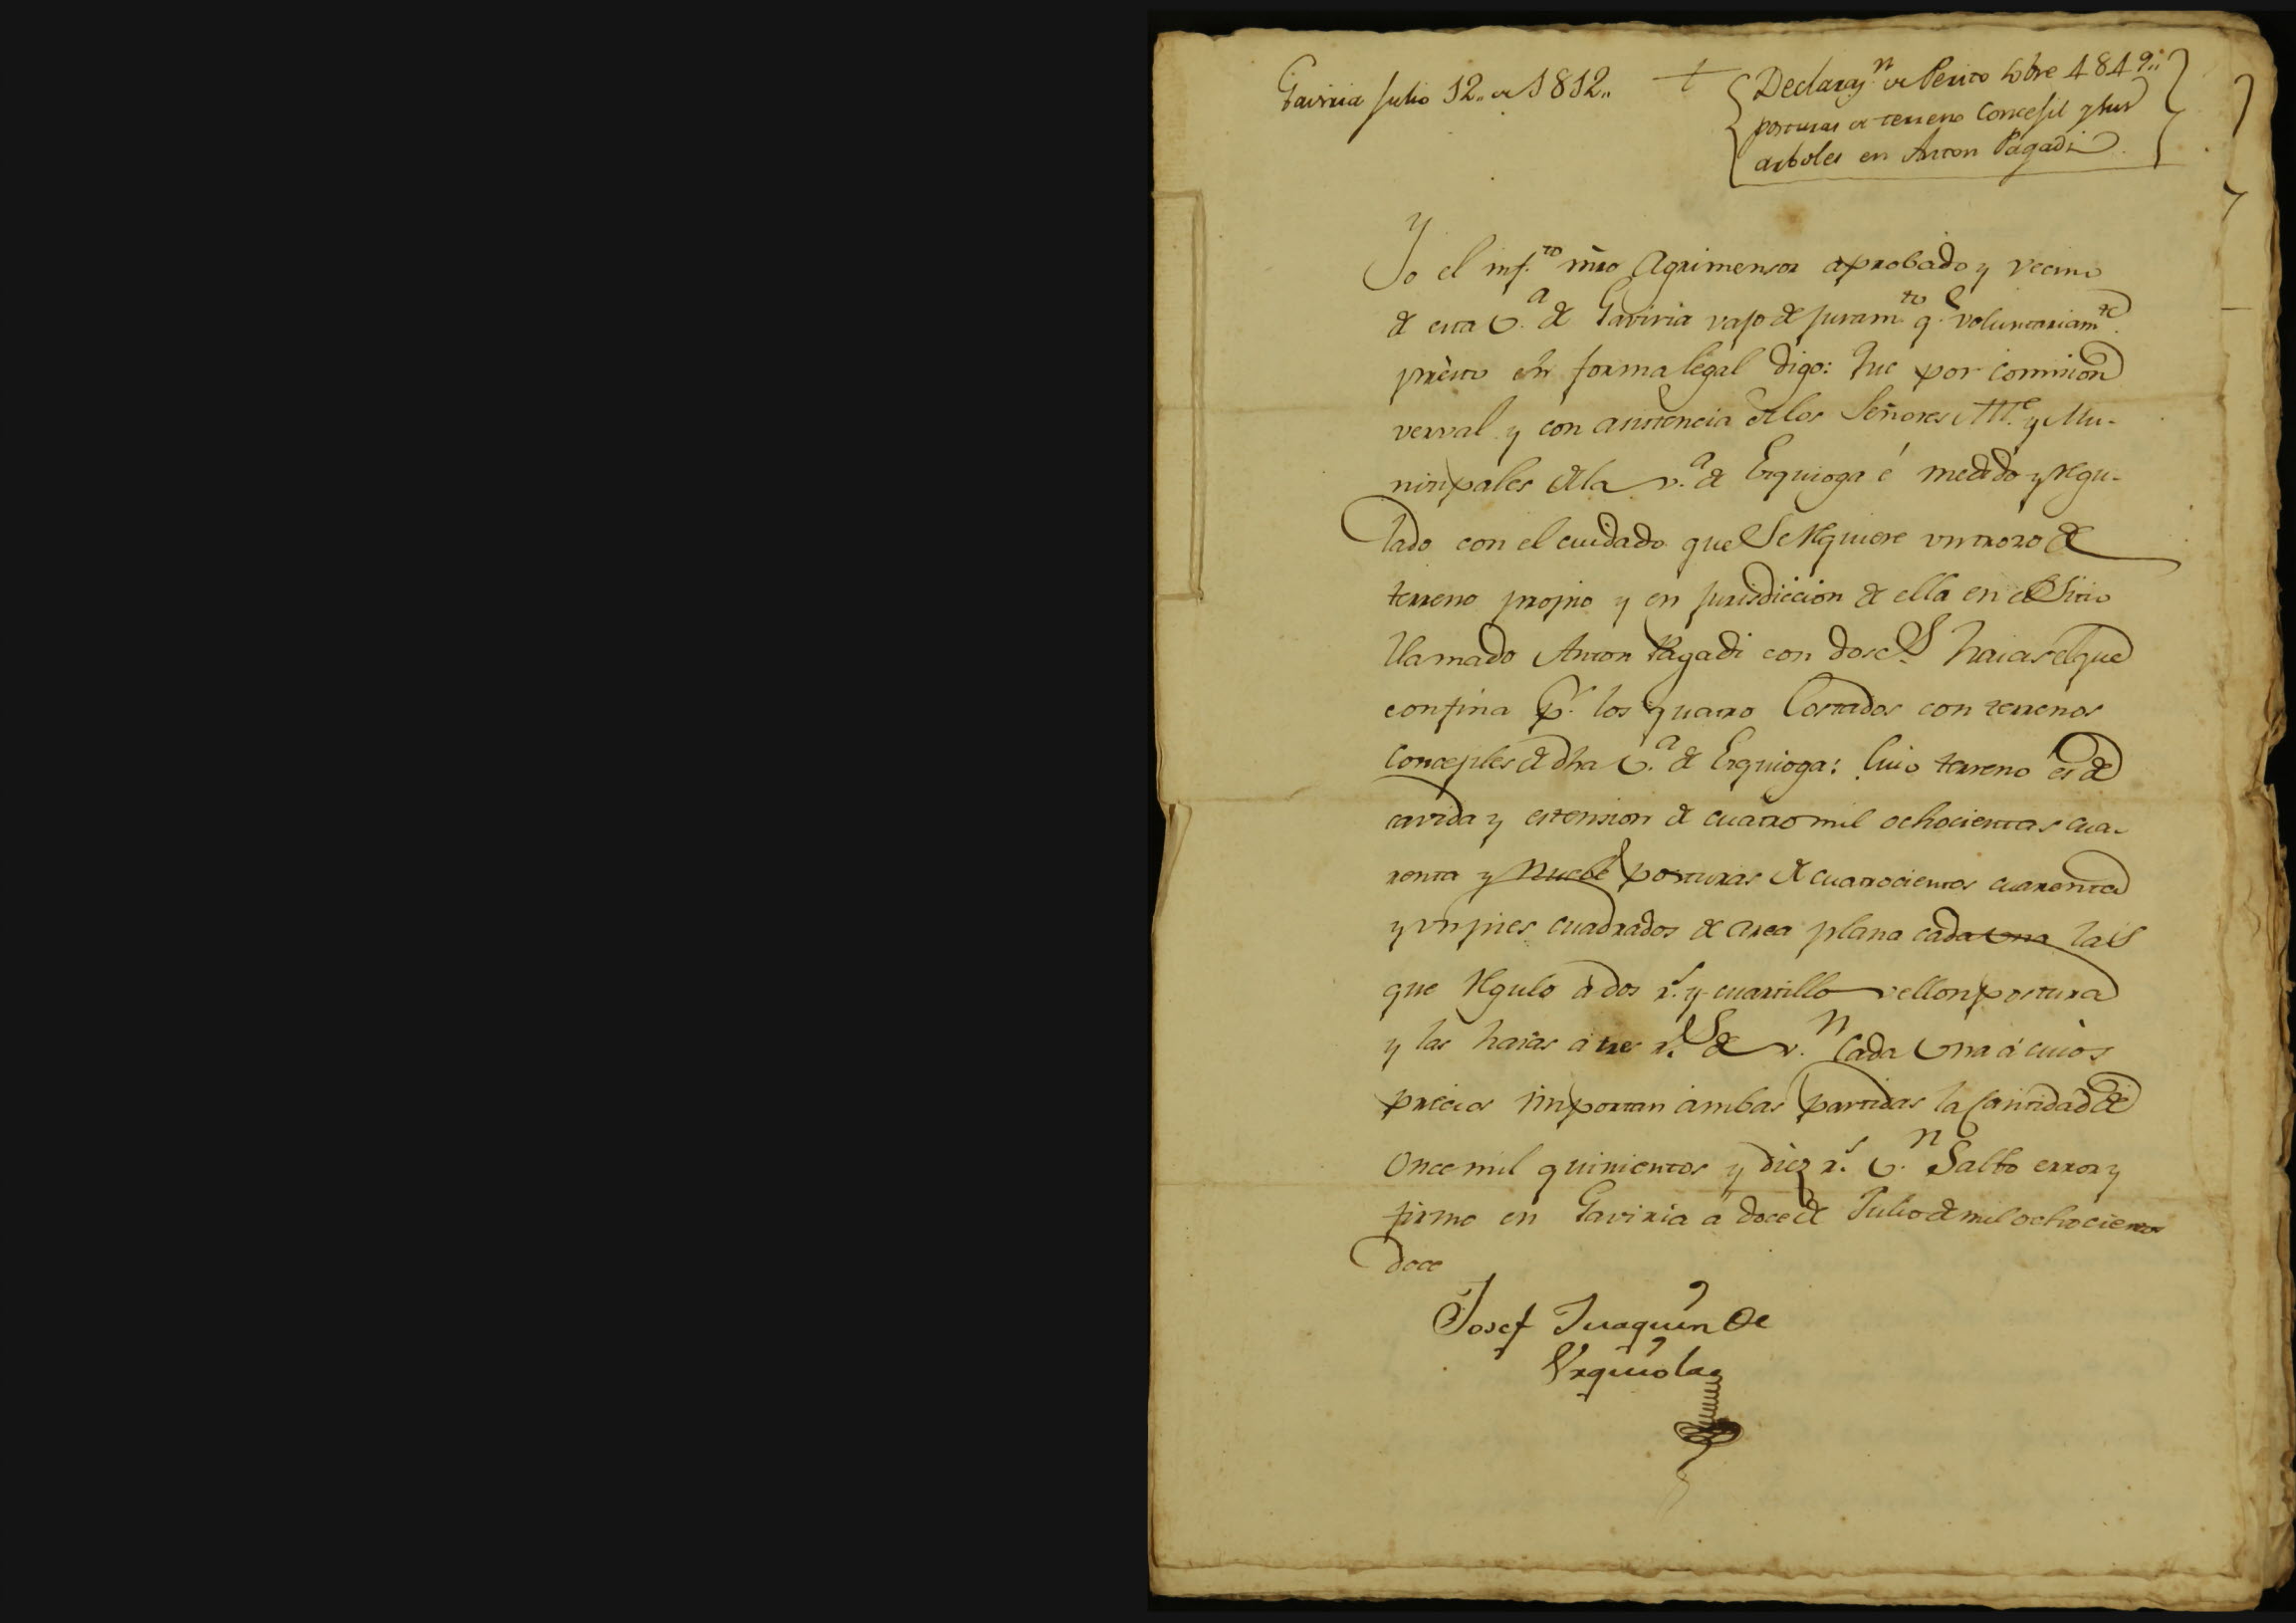 Gaviria Julio 12,, de 1812,,
†
Declaraz.n de Perito sobre 4849,,
posturas de terreno Concejil y sus
arboles en Anton Pagadi
Yo el inf.to mro Agrimensor aprobado y vecino
de esta V.a de Gaviria vajo de juram.to q.e voluntariam.te
presto en forma legal digo: Que por comision
verval y con asistencia de los Señores Alc.e y Mu-
nicipales de la v.a de Ezquioga é medido y regu-
lado con el cuidado que se requiere un trozo de
terreno propio y en jurisdiccion de ella en el sitio
llamado Anton Pagadi con dosc.s haias el que
confina p.r los quatro Costados con terrenos
Concejiles de dha V.a de Ezquioga: Cuio terreno es de
cavida y estension de cuatro mil ochocientas cua-
renta y nuebe posturas de cuatrocientos cuarenta
y un pies cuadrados de area plana cada una las
que regulo á dos r.s y cuartillo vellon postura
y las haias á tres r.s de v.n Cada Una á cuios
precios importan ambas partidas la Cantidad de
Once mil quinientos y diez r.s V.n Salbo error y
firmo en Gaviria á doce de Julio de mil ochocientos
doce
Josef Juaquin de
Urquiola